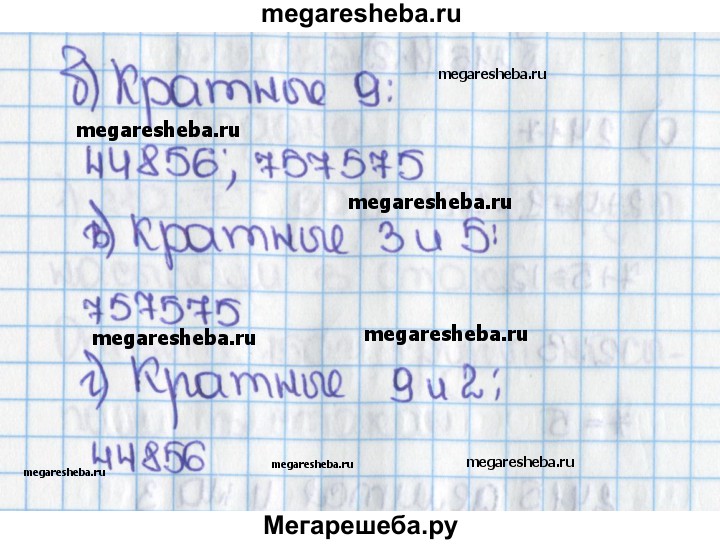 megaresheba.ru
б) Кратные 9:
megaresheba.ru
megaresheba.ru
44856; 757575
megaresheba.ru
в) Кратные 3 и 5:
757575
megaresheba.ru
megaresheba.ru
г) Кратные 9 и 2:
44856
megaresheba.ru
megaresheba.ru
megaresheba.ru
Мегарешеба.ру